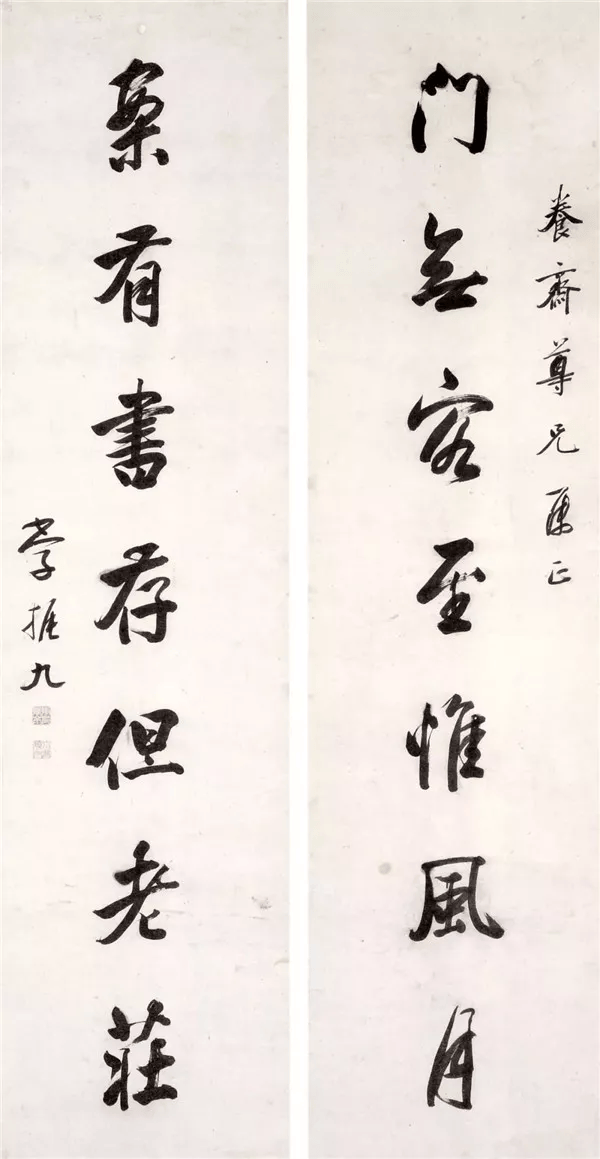 養齋尊兄屬正
門無客至惟風月
案有書存但老莊
振九